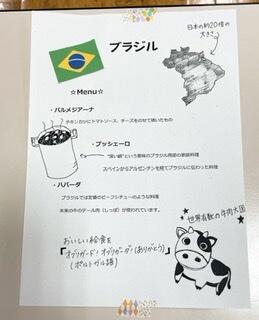 ブラジル
日本の約20倍の
大きさ
☆Menu☆
・パルメジアーナ
チキンカツにトマトソース、チーズをのせて焼いたもの
・プッシェーロ
"深い鍋"という意味のブラジル南部の家庭料理
スペインからアルゼンチンを経てブラジルに伝わった料理
・ハバーダ
ブラジルでは定番のビーフシチューのような料理
本来の牛のテール肉(しっぽ)が使われています。
世界有数の牛肉大国
おいしい給食を
「オブリガード・オブリガーダ(ありがとう)」
(ポルトガル語)